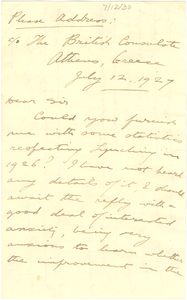 7/12/27
Please Address:
c/o The British Consulate
Athens, Greece
July 12, 1927
Dear Sir
Could you furnish
me with some statistics
respecting Lynching in
1926? I have not heard
any details of it, & should
await the reply with a
good deal of interested
anxiety, being very
anxious to learn whether
the improvement in the